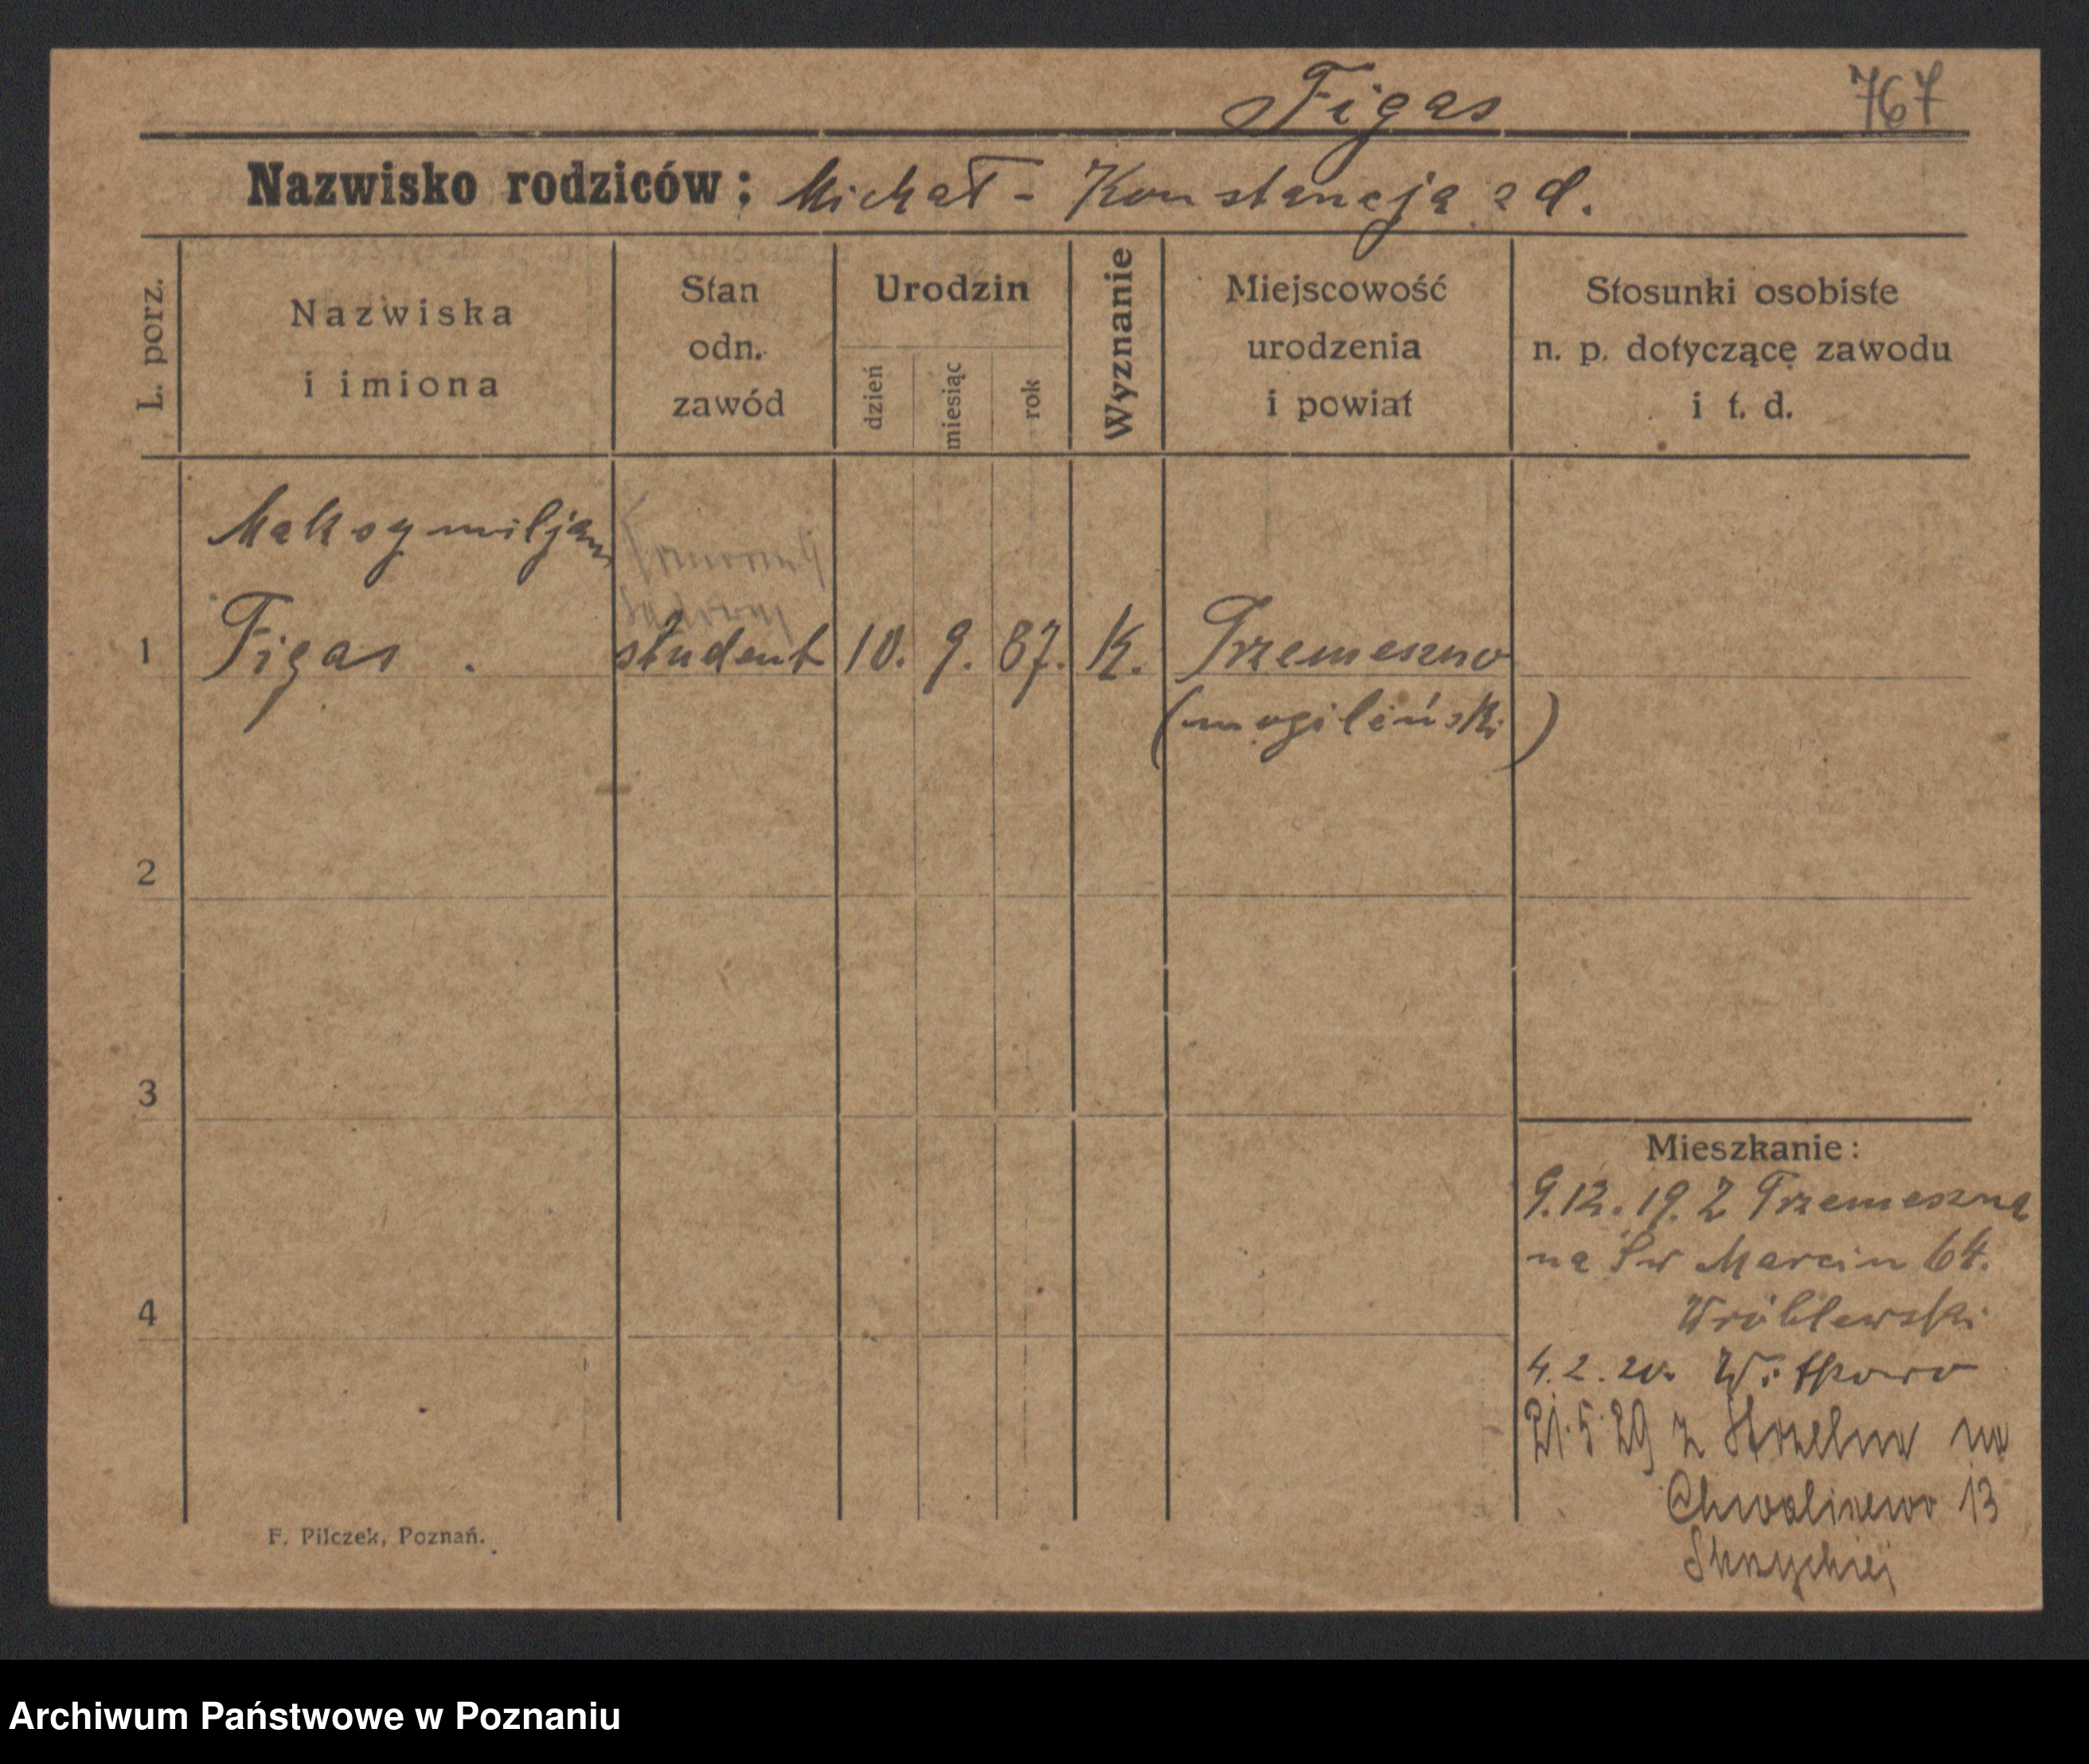 Figas 767
Nazwisko rodziców: Michał - Konstancja z d.
L. porz.
Nazwiska
i imiona
Stan
odn.
zawód
Urodzin
dzień
miesiąc
rok
Wyznanie
Miejscowość
urodzenia
i powiat
Stosunki osobiste
n. p. dotyczące zawodu
i t. d.
Maksymiljan
sądowy
1 Figas . student 10. 9. 87. K. Trzemeszno
(mogileński)
2
3
Mieszkanie:
9.12.19. Z Trzemeszna
na Św Marcin 64.
4
Wróblewski
4.2.20. Witkowo
21.5.29 z Strzelna na
Chwaliszewo 13
F. Pilczek, Poznań.
Archiwum Państwowe w Poznaniu